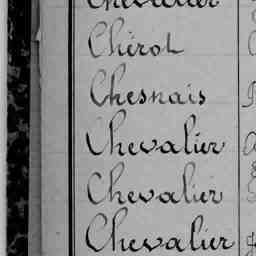 Chevalier
Chérot
Chesnais
Chevalier
Chevalier
Chevalier